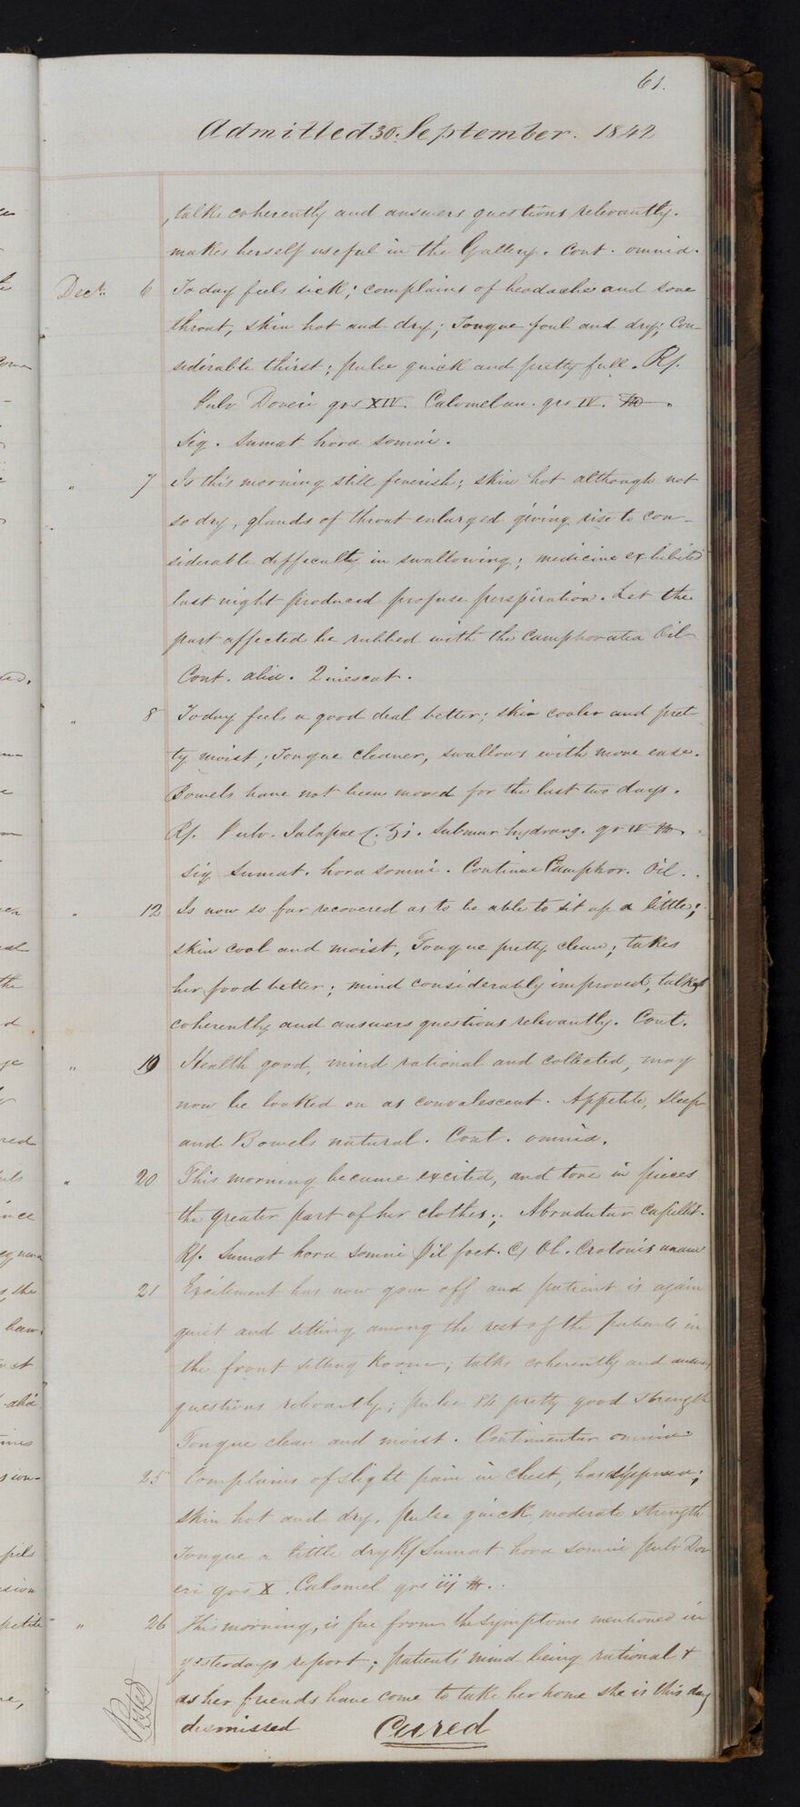 61.
Admitted 30. September. 1842
talks coherently and answers questions relevantly.
makes herself useful in the Gallery. Cont. omnia.
Decr. 6 To day feels sick; complains of headache and sore
throat, skin hot and dry; Tongue foul and dry; Con-
siderable thirst; pulse quick and pretty full. Rp.
Pulv Doveri grs XIV. Calomel grs IV.
Sig. Sumat hora somni.
" 7 Is this morning still feverish; skin hot although not
so dry, glands of throat enlarged giving rise to con-
siderable difficulty in swallowing; medicine exhibited
last night produced profuse perspiration. Let the
part affected be rubbed with the Camphorated Oil
Cont. alia. Quiescat.
" 8 Today feels a good deal better; skin cooler and pret
ty moist; Tongue cleaner, swallows with more ease.
Bowels have not been moved for the last two days.
Rp. Pulv. Jalapae C. ʒi. Submur hydrarg. gr IV
Sig Sumat. hora somni. Continue Camphor. Oil.
" 12 Is now so far recovered as to be able to sit up a little;
skin cool and moist, Tongue pretty clean; takes
her food better; mind considerably improved, talks
coherently and answers questions relevantly. Cont.
" 19 Health good, mind rational and collected, may
now be looked on as convalescent. Appetite, Sleep
and Bowels natural. Cont. omnia.
" 20 This morning became excited, and tore in pieces
the greater part of her clothes; Abradutur capillit.
Rp. Sumat hora somni Pil foet. Cj Ol. Crotonis unam
21 Excitement has now gone off and patient is again
quiet and sitting among the rest of the patients in
the front sitting Room; talks coherently and answers
questions relevantly; pulse 84 pretty good strength
Tongue clean and moist. Continuentur omnia
25 Complains of slight pain in chest, has dyspnoea;
skin hot and dry, pulse quick, moderate strength
Tongue a little dry Rp Sumat hora somni pulv Dov
eri grs X. Calomel grs iij
" 26 This morning, is free from the symptoms mentioned in
yesterdays report; patients' mind being rational &
as her friends have come to take her home she is this day
dismissed Cured